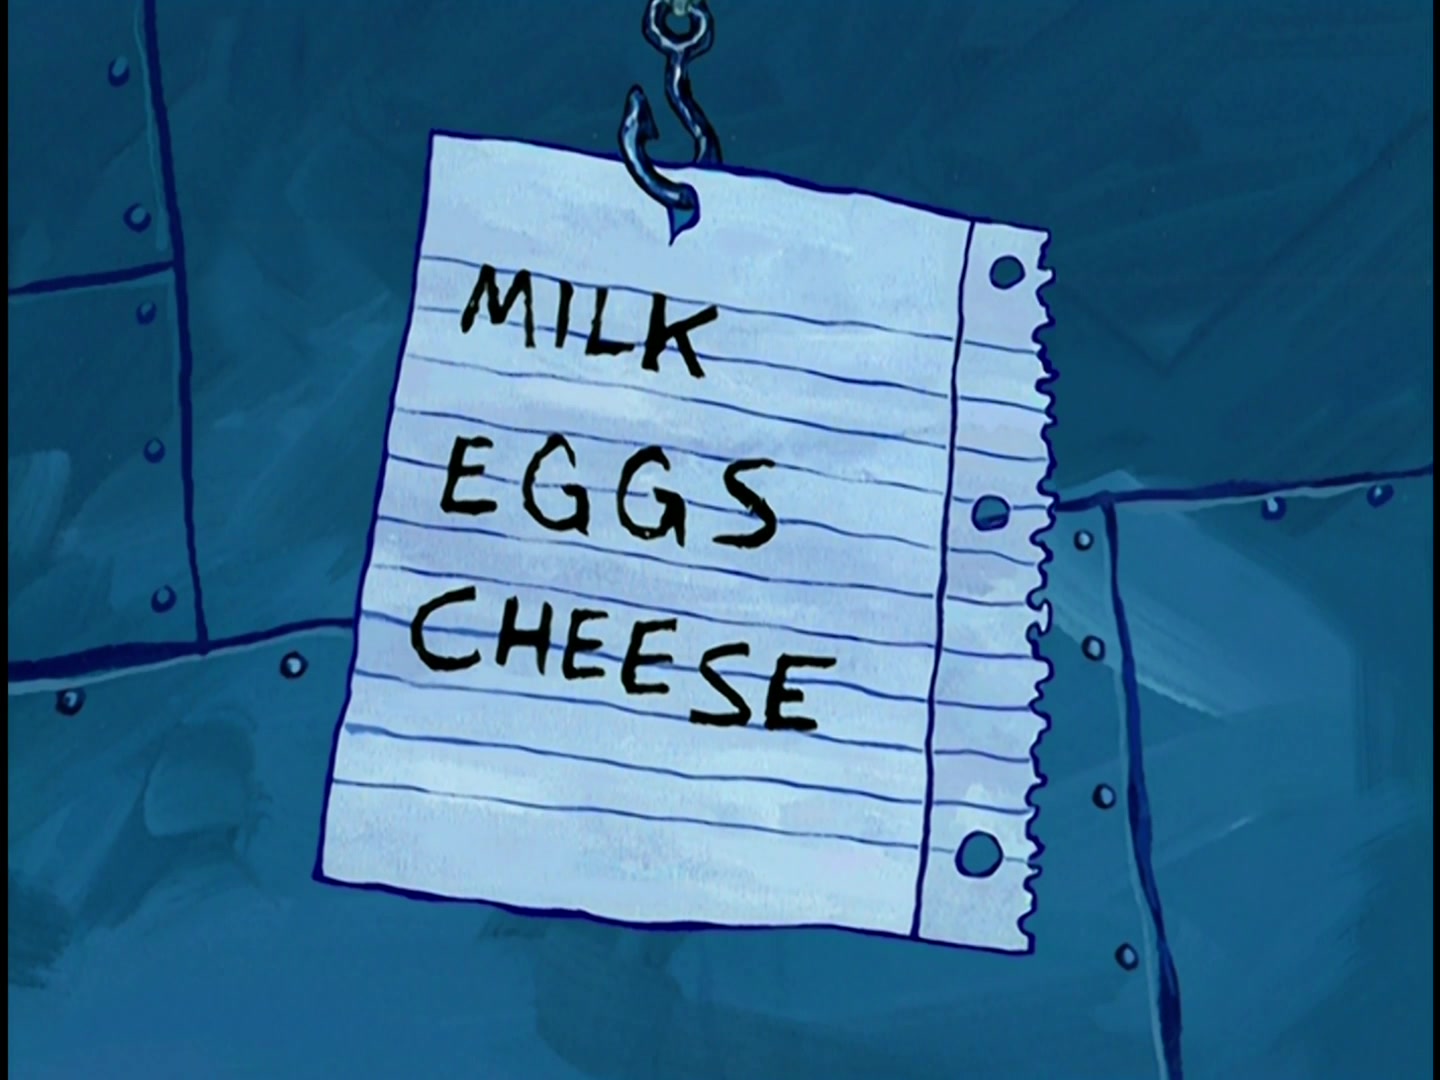 MILK
EGGS
CHEESE